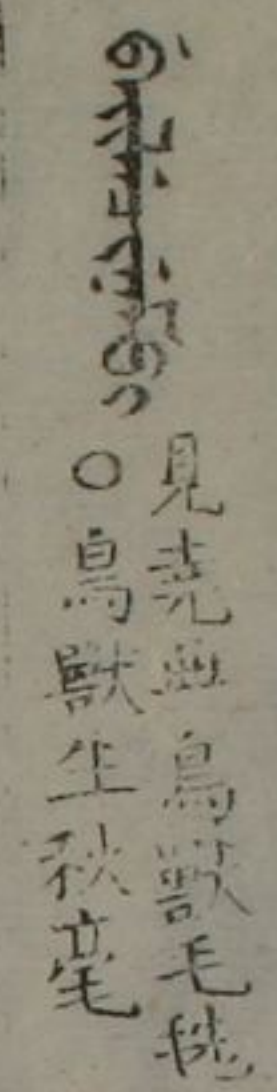 見堯典鳥獸毛毨
○鳥獸生秋毫